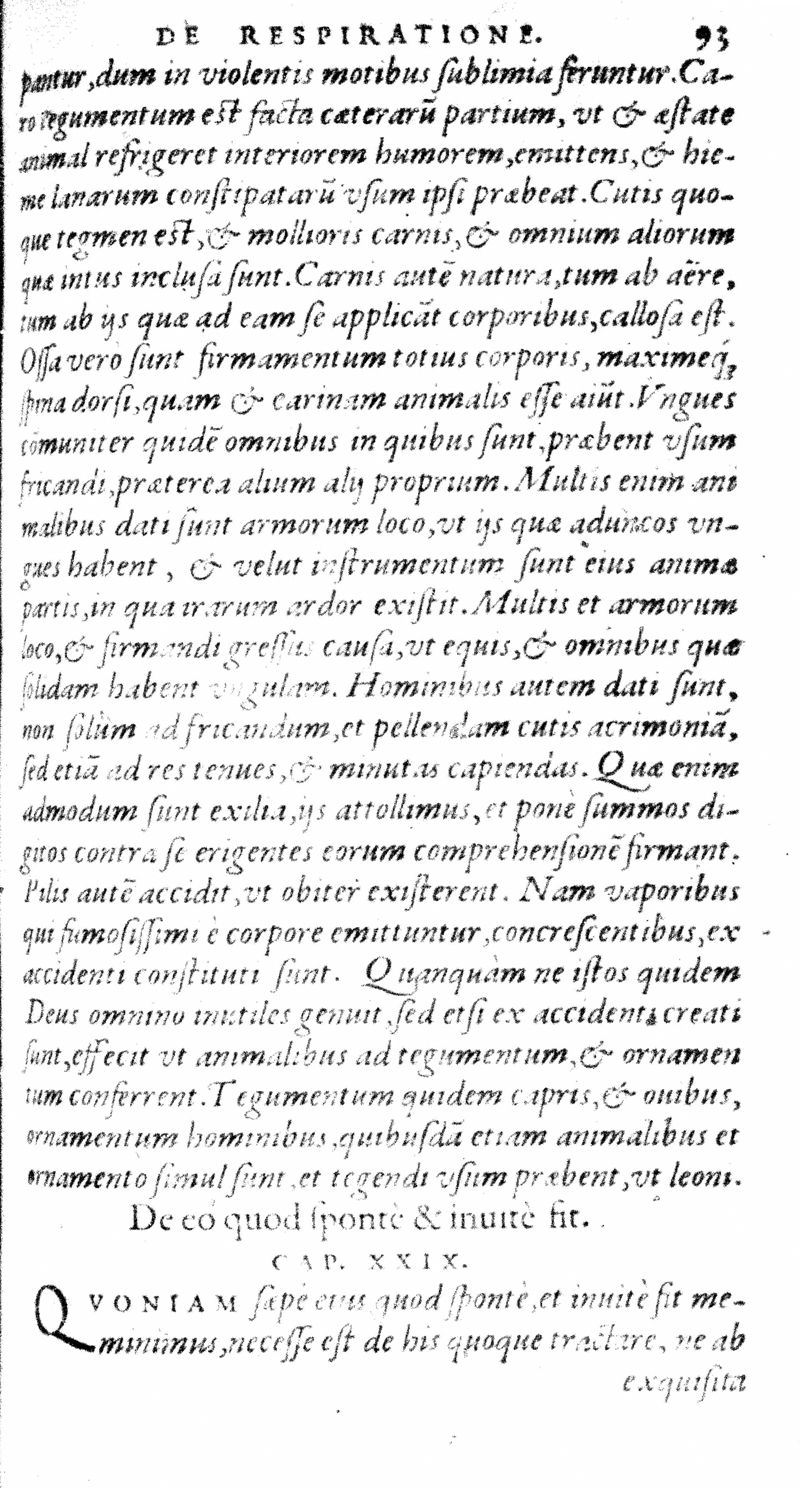 DE RESPIRATIONE. 93
pantur, dum in violentis motibus ſublimia feruntur. Ca-
ro tegumentum eſt facta cæterarū partium, vt & æſtate
animal refrigeret interiorem humorem, emittens, & hie-
me lanarum conſtipatarū vſum ipſi præbeat. Cutis quo-
que tegmen eſt, & mollioris carnis, & omnium aliorum
quæ intus incluſa ſunt. Carnis autē natura, tum ab aëre,
tum ab ijs quæ ad eam ſe applicāt corporibus, calloſa eſt.
Oſſa vero ſunt firmamentum totius corporis, maximeq́;
ſpina dorſi, quam & carinam animalis eſſe aiūt. Vngues
cōmuniter quidē omnibus in quibus ſunt, præbent vſum
fricandi, præterea alium alij proprium. Multis enim ani
malibus dati ſunt armorum loco, vt ijs quæ aduncos vn-
gues habent, & velut inſtrumentum ſunt eius animæ
partis, in qua irarum ardor exiſtit. Multis et armorum
loco, & firmandi greſſus cauſa, vt equis, & omnibus quæ
ſolidam habent vngulam. Hominibus autem dati ſunt,
non ſolùm ad fricandum, et pellendam cutis acrimoniā,
ſed etiā ad res tenues, & minutas capiendas. Quæ enim
admodum ſunt exilia, ijs attollimus, et ponè ſummos di-
gitos contra ſe erigentes eorum comprehenſionē firmant.
Pilis autē accidit, vt obiter exiſterent. Nam vaporibus
qui fumoſiſſimi è corpore emittuntur, concreſcentibus, ex
accidenti conſtituti ſunt. Quanquàm ne iſtos quidem
Deus omnino inutiles genuit, ſed etſi ex accidenti creati
ſunt, effecit vt animalibus ad tegumentum, & ornamen
tum conferrent. Tegumentum quidem capris, & ouibus,
ornamentum hominibus, quibuſdā etiam animalibus et
ornamento ſimul ſunt, et tegendi vſum præbent, vt leoni.
De eo quod ſpontè & inuitè fit.
CAP. XXIX.
QVONIAM ſæpè eius quod ſpontè, et inuitè fit me-
minimus, neceſſe eſt de his quoque tractare, ne ab
exquiſita